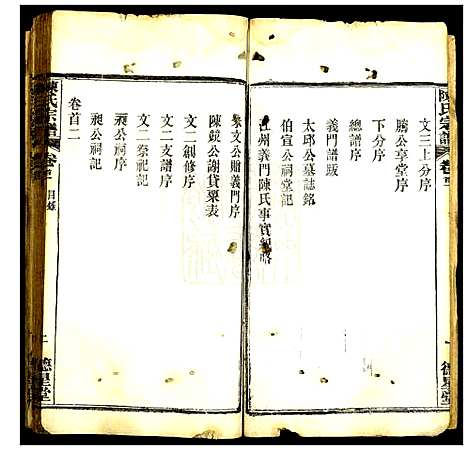 陳氏宗譜
卷首
一
德星堂
文三上分序
勝公享堂序
分序
總譜序
義門譜版
太邱公墓誌銘
伯宣公祠堂記
江州義門陳氏事實紀略
朱文公贈義門序
陳鏡公謝貸粟表
文二創修序
文二支譜序
文二祭祀記
昶公祠序
昶公祠記
卷首二
陳氏宗譜
卷首
目錄
二
德星堂